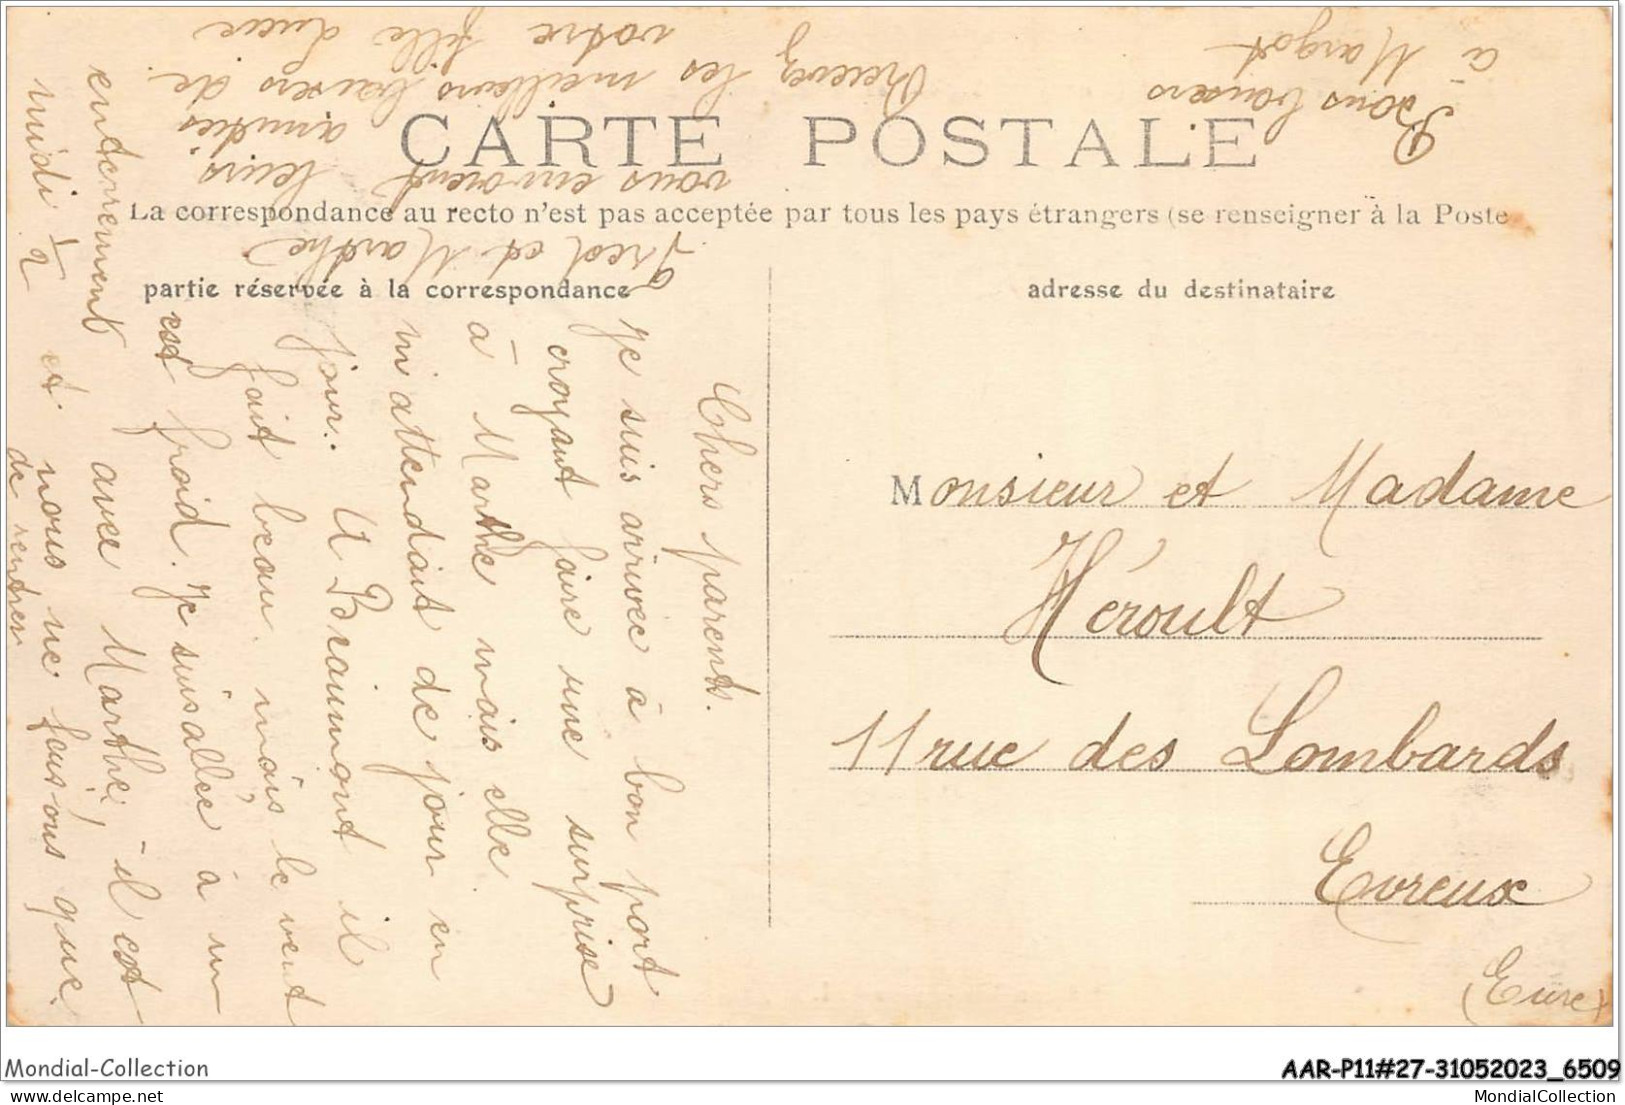 CARTE POSTALE
La correspondance au recto n'est pas acceptée par tous les pays étrangers (se renseigner à la Poste
partie réservée à la correspondance
adresse du destinataire
Monsieur et Madame
Héroult
11 rue des Lombards
Evreux
(Eure)
Chers parents.
Je suis arrivée à bon port
croyant faire une surprise
à Marthe mais elle
m'attendait de jour en
jour. A Beaumont il
fait beau mais le vent
est froid. Je suis allée à un
enterrement avec Marthe, il est
midi 1/2 et nous ne faisons que
de rentrer
Fred et Marthe
vous envoient leurs
amitiés.
Recevez les meilleurs baisers de
votre fille
Bons baisers
à Margot
Mondial-Collection
AAR-P11#27-31052023_6509
www.delcampe.net
MondialCollection